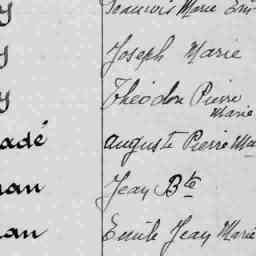 y François Marie Em
y Joseph Marie
y Théodore Pierre
Marie
adé Auguste Pierre Ma
nan Jean Bte
an Emile Jean Marie